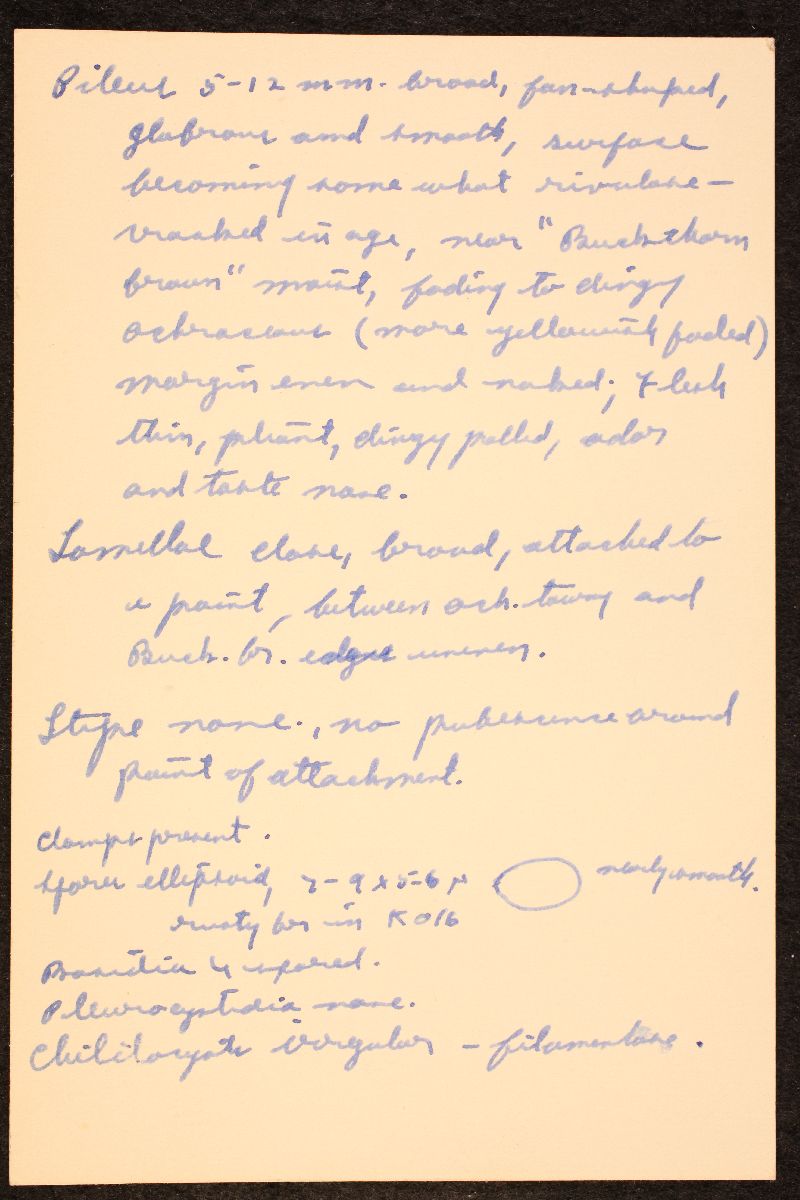 Pileus 5-12 mm. broad, fan-shaped,
glabrous and smooth, surface
becoming some what rivulose-
cracked in age, near "Buckthorn
brown" moist, fading to dingy
ochraceous (more yellowish faded)
margin even and naked; Flesh
thin, pliant, dingy pallid, odor
and taste none.
Lamellae close, broad, attached to
a point, between och. tawny and
Buck. br. edges uneven.
Stipe none., no pubescence around
point of attachment.
Clamps present.
Spores ellipsoid, 7-9 x 5-6 µ nearly smooth.
rusty br in KOH
Basidia 4 spored.
Pleurocystidia none.
Cheilocysts irregular - filamentose.